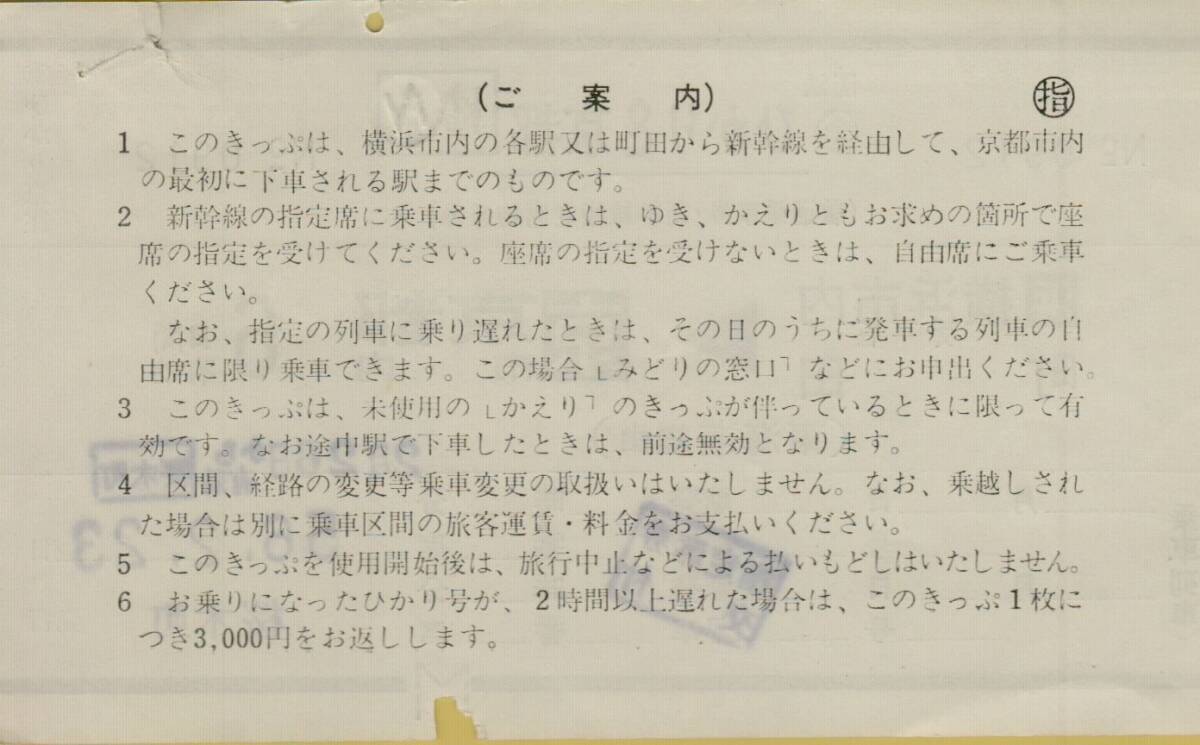 (ご案内) ㊕指
1 このきっぷは、横浜市内の各駅又は町田から新幹線を経由して、京都市内
の最初に下車される駅までのものです。
2 新幹線の指定席に乗車されるときは、ゆき、かえりともお求めの箇所で座
席の指定を受けてください。座席の指定を受けないときは、自由席にご乗車
ください。
なお、指定の列車に乗り遅れたときは、その日のうちに発車する列車の自
由席に限り乗車できます。この場合「みどりの窓口」などにお申出ください。
3 このきっぷは、未使用の「かえり」のきっぷが伴っているときに限って有
効です。なお途中駅で下車したときは、前途無効となります。
4 区間、経路の変更等乗車変更の取扱いはいたしません。なお、乗越しされ
た場合は別に乗車区間の旅客運賃・料金をお支払いください。
5 このきっぷを使用開始後は、旅行中止などによる払いもどしはいたしません。
6 お乗りになったひかり号が、2時間以上遅れた場合は、このきっぷ1枚に
つき3,000円をお返しします。